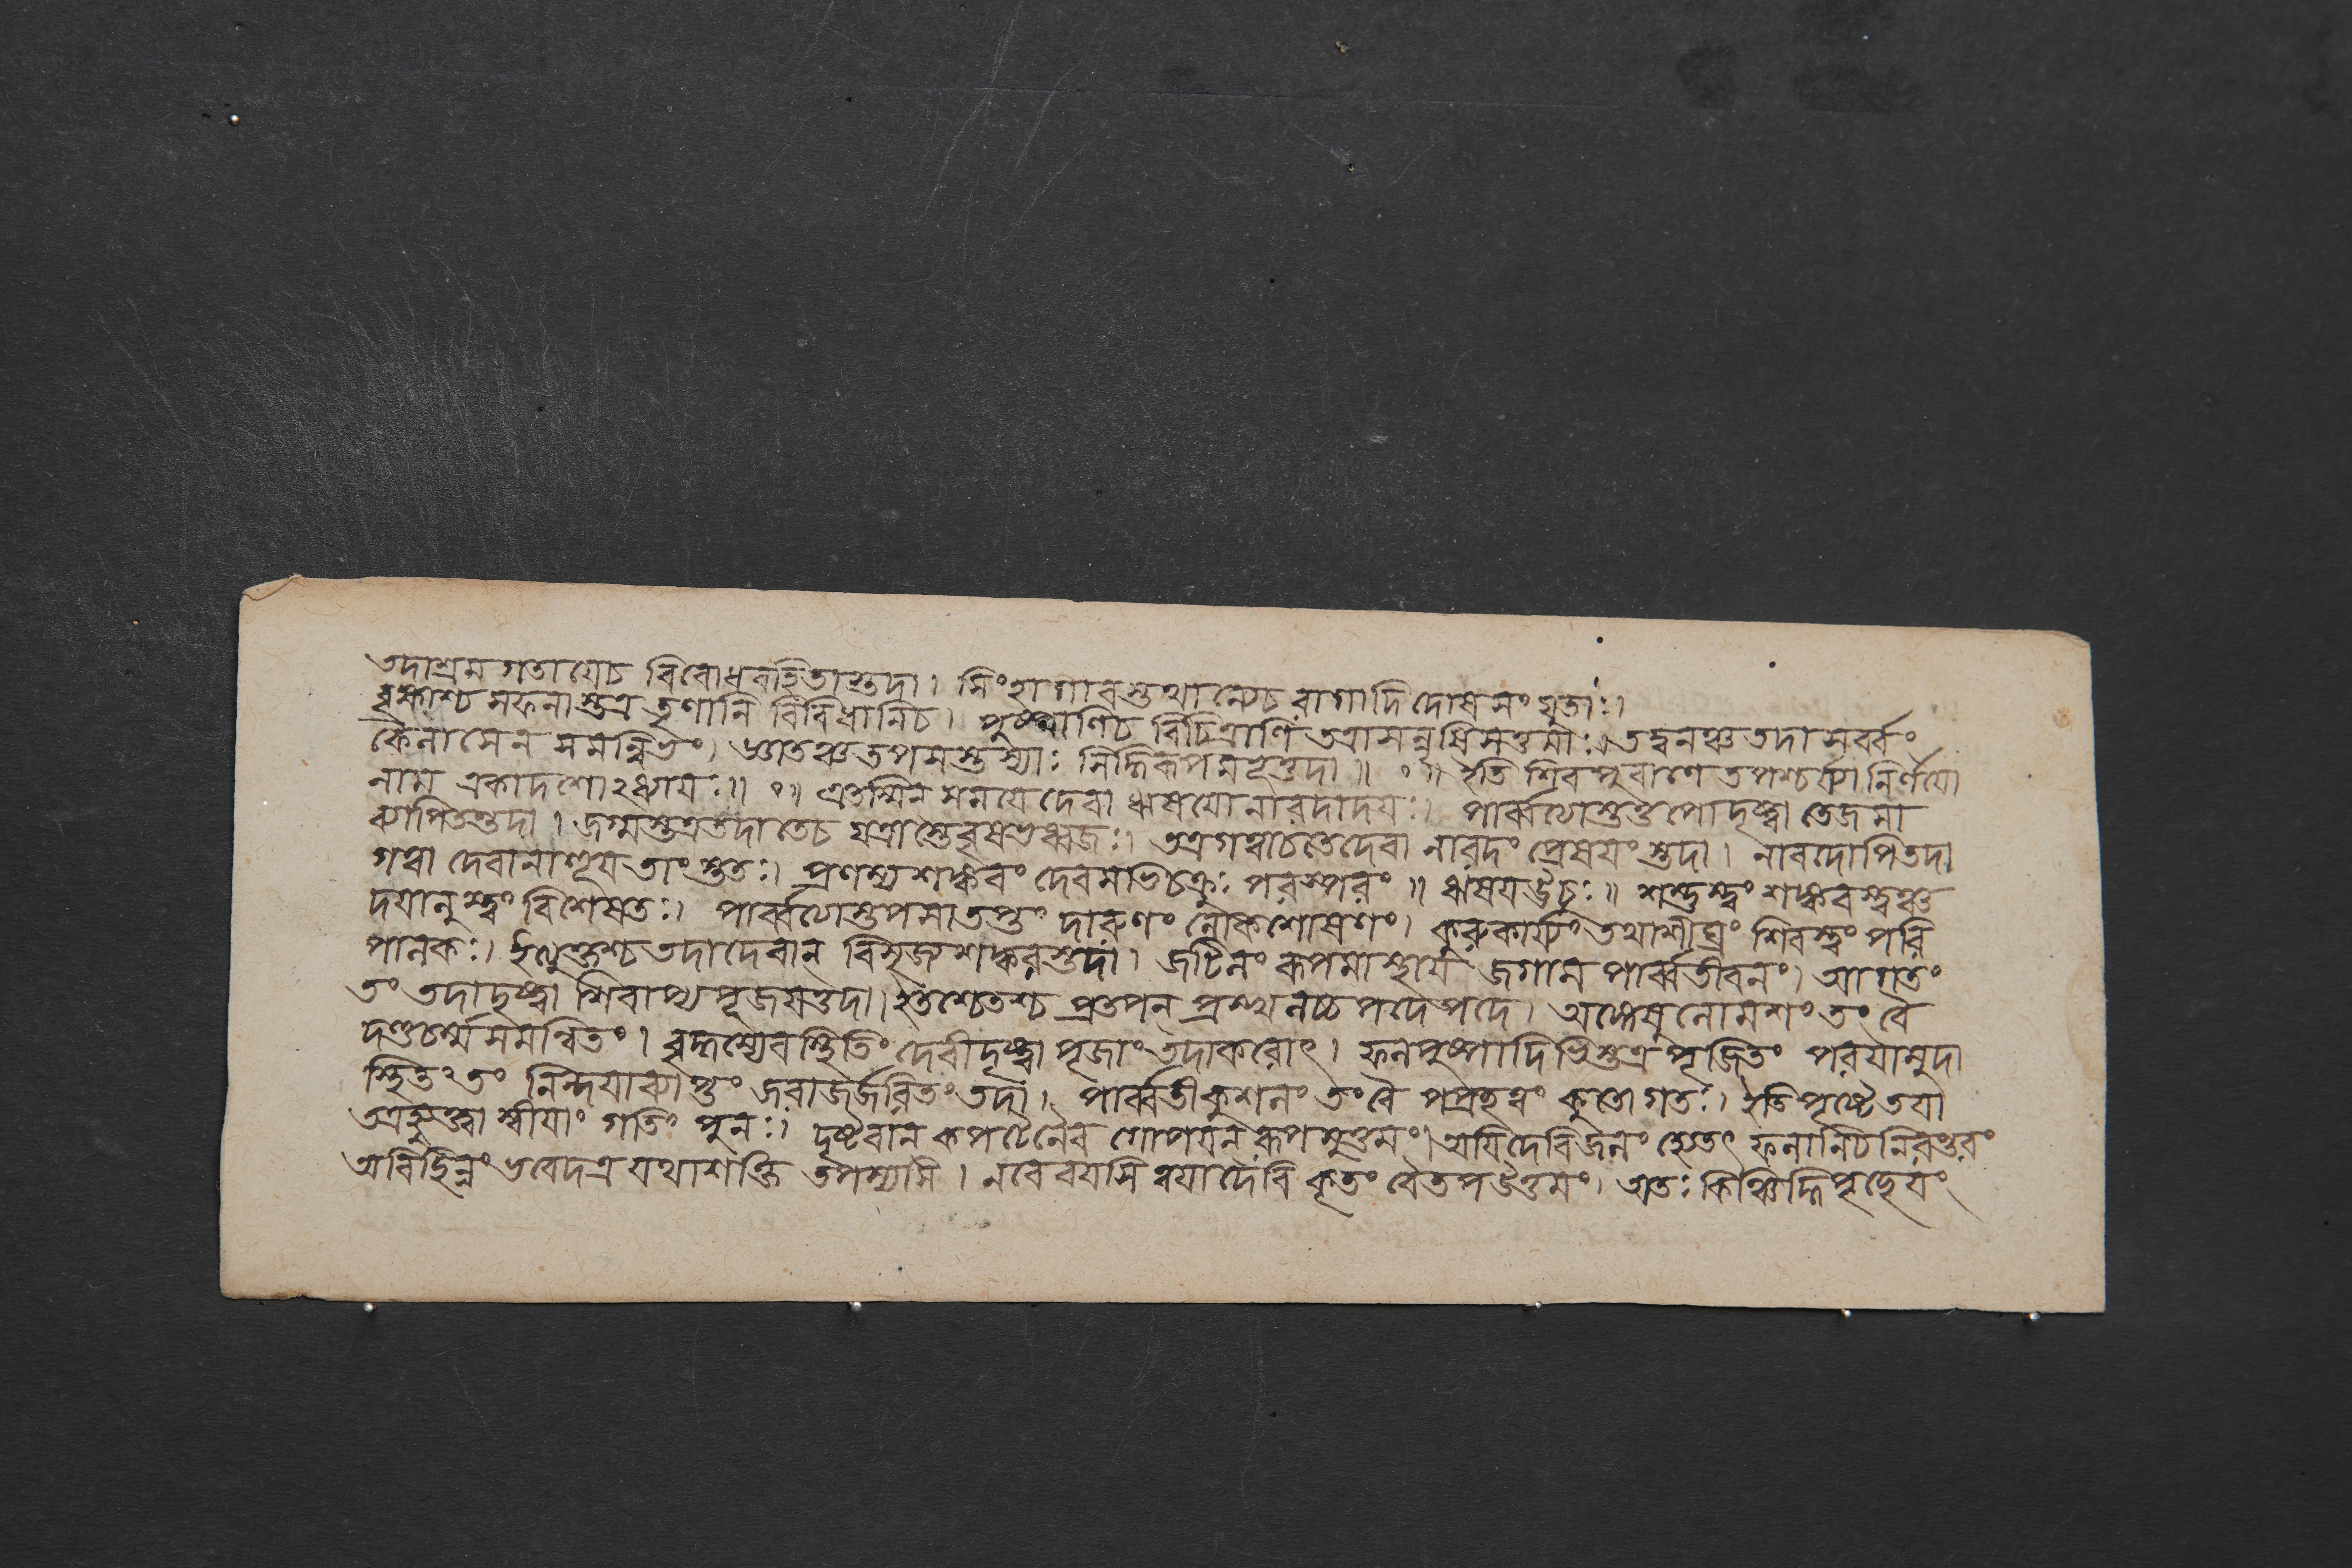 তদাশ্রম গতাযেচ বিবোধবহিতাস্তদা। সিংহাগাবস্তথান্যেচ রাগাদিদোষসংযুতাঃ।
বৃক্ষাশ্চ সফলাস্তত্র তৃণানি বিবিধানিচ। পুষ্পাণিচ বিচিত্রাণি তত্রাসন্নৃষিসত্তমাঃ। তদ্বনঞ্চ তদা সর্ব্বং
কৈলাসেন সমন্বিতং। জাতঞ্চ তপসস্তস্যাঃ সিদ্ধিরূপমভূত্তদা॥ ০॥ ইতি শিবপুবাণে তপশ্চর্য্যা নির্ণযো
নাম একাদশোঽধ্যাযঃ॥ ০॥ এতস্মিন সমযে দেবা ঋষযোনারদাদযঃ। পার্ব্বত্যাস্তুতপোদৃষ্ট্বা তেজসা
ব্যাপিতস্তদা। জগ্মুস্তত্রতদা তেচ যত্রাস্তে বৃষভধ্বজঃ। তত্রগত্বাচতেদেবা নারদং প্রেষযংস্তদা। নাবদোপিতদা
গত্বা দেবানাহূয তাংস্ততঃ। প্রণম্য শঙ্কবং দেবমভিচক্রুঃ পরস্পরং॥ ঋষযঊচুঃ॥ শম্ভুস্ত্বং শঙ্কবস্ত্বঞ্চ
দযালুস্ত্বং বিশেষতঃ। পার্ব্বত্যাস্তপসাতপ্তং দারুণং লোকশোষণং। কুরুকার্য্যং তথাশীঘ্রং শিবস্ত্বং পরি
পালকঃ। ইত্যুক্তশ্চ তদাদেবান বিসৃজ্য শঙ্করস্তদা। জটিলং রূপমাস্থায জগাম পার্ব্বতীবনং। আগতং
তং তদাদৃষ্ট্বা শিবাপ্যপূজযত্তদা। ইতশ্চেতশ্চ প্রতপন প্রস্খলচ্চ পদেপদে। অক্ষেষুলোমশং তং বৈ
দণ্ডচর্ম্মসমন্বিতং। ব্রহ্মণ্যেবস্থিতিং দেবীদৃষ্ট্বা পূজাং তদাকরোৎ। ফলপুষ্পাদিভিস্তত্র পূজিতং পরযামুদা
স্থিতং তং নিন্দযাব্যাপ্তং জরাজর্জরিতং তদা। পার্ব্বতীকুশলং তং বৈ পপ্রচ্ছত্বং কুতোগতঃ। ইতিপৃষ্টৈতযা
তত্রহ্যুক্ত্বা স্বীযাং গতিং পুনঃ। দৃষ্টবান কপটেনৈব গোপযন রূপমুত্তমং। অযিদেবিজলং হ্যেতৎ ফলানিচনিরন্তরং
অবিচ্ছিন্নং ভবেদত্র যথাশক্তি তপস্যসি। নবে বযসি ত্বযাদেবি কৃতং বৈতপউত্তমং। অতঃ কিঞ্চিদ্ধিপৃচ্ছেযং